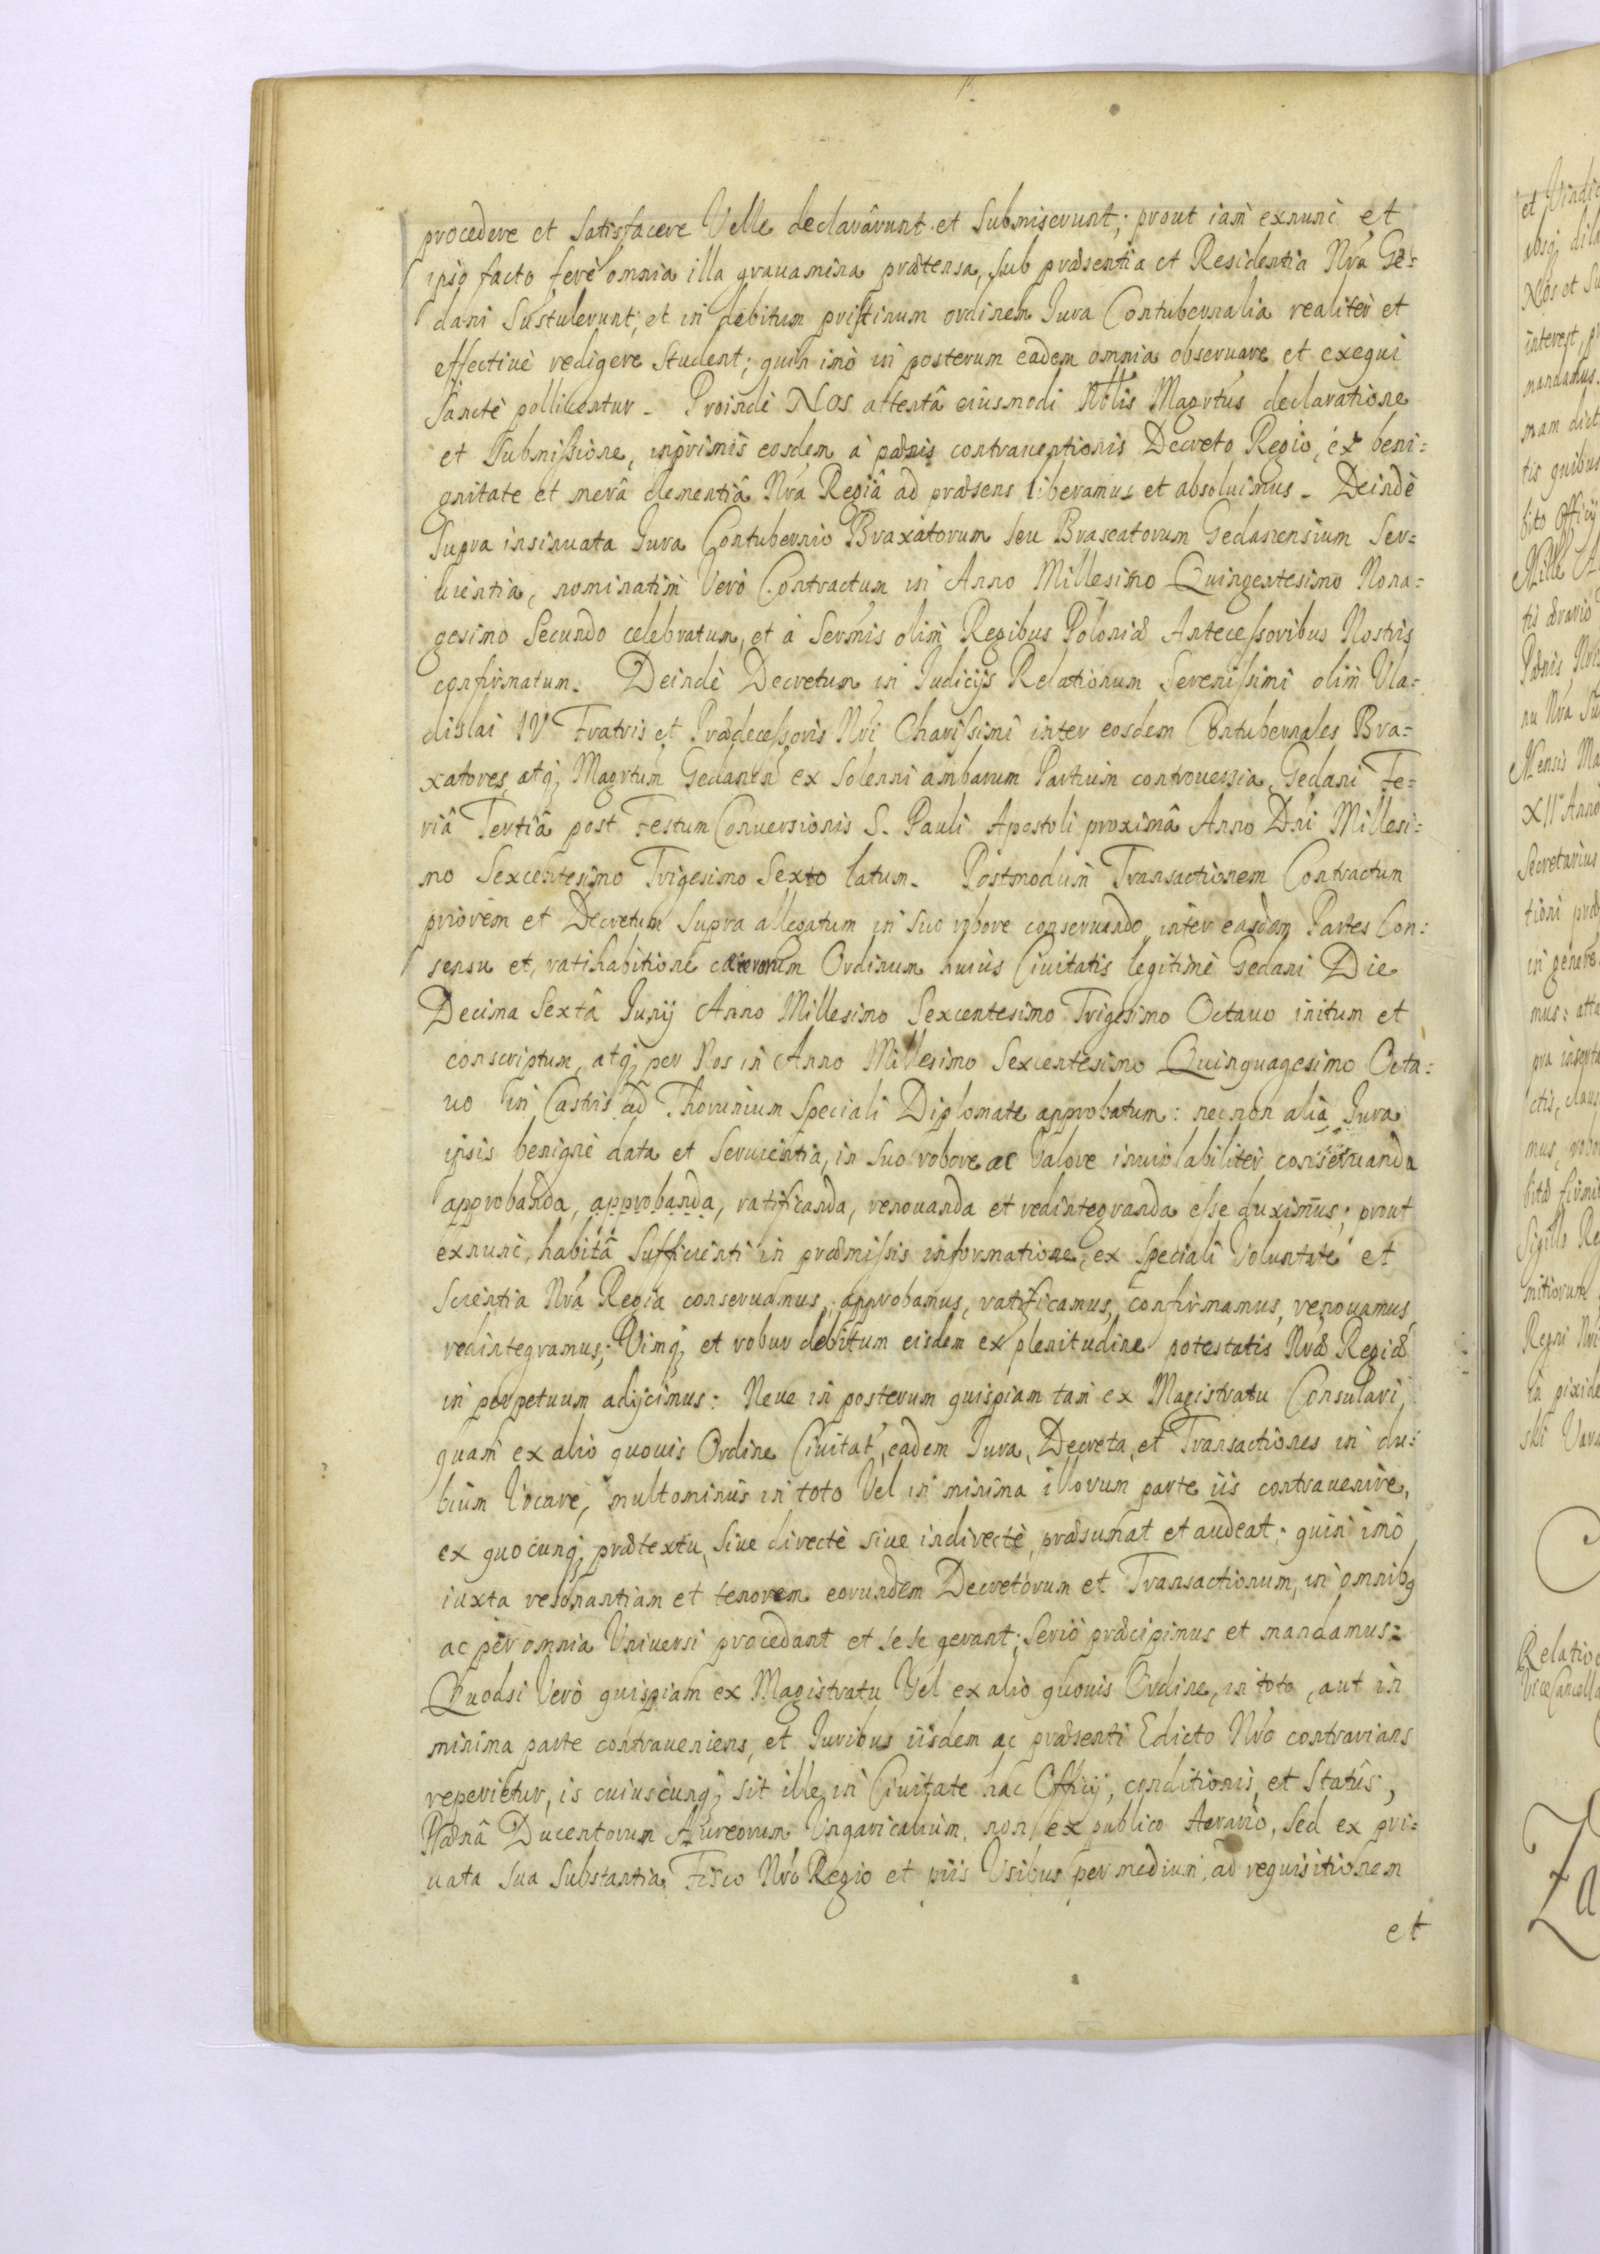 procedere et satisfacere Velle declarârunt et submiserunt; prout iam exnunc et
ipso facto ferè omnia illa grauamina prætensa, sub præsentia et Residentia Nrâ Ge=
dani sustulerunt; et in debitum pristinum ordinem Jura Contubernalia realitèr et
effectiuè redigere student; quin imò in posterum eadem omnia obseruare et exequi
sanctè pollicentur. Proindè Nos attentâ eiusmodi Nobilis Magrtus declaratione
et submissione, inprimis eosdem à pœnis contrauentionis Decreto Regio, ex beni=
gnitate et merâ clementiâ Nrâ Regiâ ad præsens liberamus et absoluimus. Deindè
Supra insinuata Jura Contubernio Braxatorum seu Braseatorum Gedanensium Ser=
uientia, nominatim Verò Contractum in Anno Millesimo Quingentesimo Nona=
gesimo Secundo celebratum, et à Sermis olim Regibus Poloniæ Antecessoribus Nostris
confirmatum. Deindè Decretum in Judicijs Relationum Serenissimi olim Vla=
dislai IV Fratris et Prædecessoris Nri Charissimi inter eosdem Contubernales Bra=
xatores, atq; Magrtum Gedanen ex solenni ambarum Partium controuersia, Gedani Fe=
riâ Tertiâ post Festum Conuersionis S. Pauli Apostoli proximâ Anno Dni Millesi=
mo Sexcentesimo Trigesimo Sexto latum. Postmodùm Transactionem Contractum
priorem et Decretum supra allegatum in suo robore conseruando, inter easdem Partes Con=
sensu et ratihabitione cæterorum Ordinum huius Ciuitatis legitimè Gedani Die
Decima Sextâ Junij Anno Millesimo Sexcentesimo Trigesimo Octauo initum et
conscriptum, atq; per Nos in Anno Millesimo Sexcentesimo Quinquagesimo Octa=
uo in Castris ad Thorunium Speciali Diplomate approbatum: necnon alia Jura
ipsis benignè data et seruientia, in suo robore ac Valore inuiolabilitèr conseruanda
approbanda, approbanda, ratificanda, renouanda et redintegranda esse duximus; prout
exnunc, habitâ sufficienti in præmissis informatione, ex speciali Voluntate et
Scientia Nrâ Regia conseruamus, approbamus, ratificamus, confirmamus, renouamus,
redintegramus; Vimq; et robur debitum eisdem ex plenitudine potestatis Nræ Regiæ
in perpetuum adijcimus: Neue in posterum quispiam tam ex Magistratu Consulari,
quam ex alio quouis Ordine Ciuitat, eadem Jura, Decreta, et Transactiones in du=
bium Vocare, multominùs in toto Vel in minima illorum parte iis contrauenire,
ex quocunq; prætextu, siue directè siue indirectè, præsumat et audeat: quin imò
iuxta resonantiam et tenorem eorundem Decretorum et Transactionum, in omnibq
ac per omnia Vniuersi procedant et sese gerant; seriò præcipimus et mandamus:
Quodsi Verò quispiam ex Magistratu Vel ex alio quouis Ordine, in toto, aut in
minima parte contraueniens, et Juribus iisdem ac præsenti Edicto Nro contrarians
reperietur, is cuiuscunq; sit ille in Ciuitate hac Officij, conditionis, et Statûs,
Pœnâ Ducentorum Aureorum Vngaricalium, non ex publico Aerario, sed ex pri=
uata sua substantia, Fisco Nro Regio et piis Vsibus per medium, ad requisitionem
et